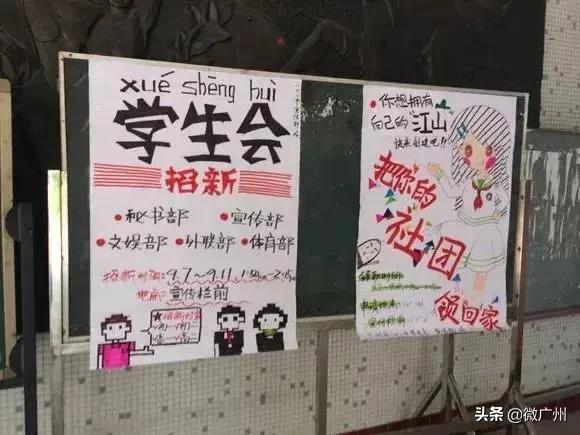 xué shēng huì
学生会
招新
•秘书部 •宣传部
•文娱部 •外联部 •体育部
招新时间:9.7~9.11
地点:宣传栏前
你想拥有
自己的"江山"
快来创建吧!!
把你的
社团
领回家
头条 @微广州